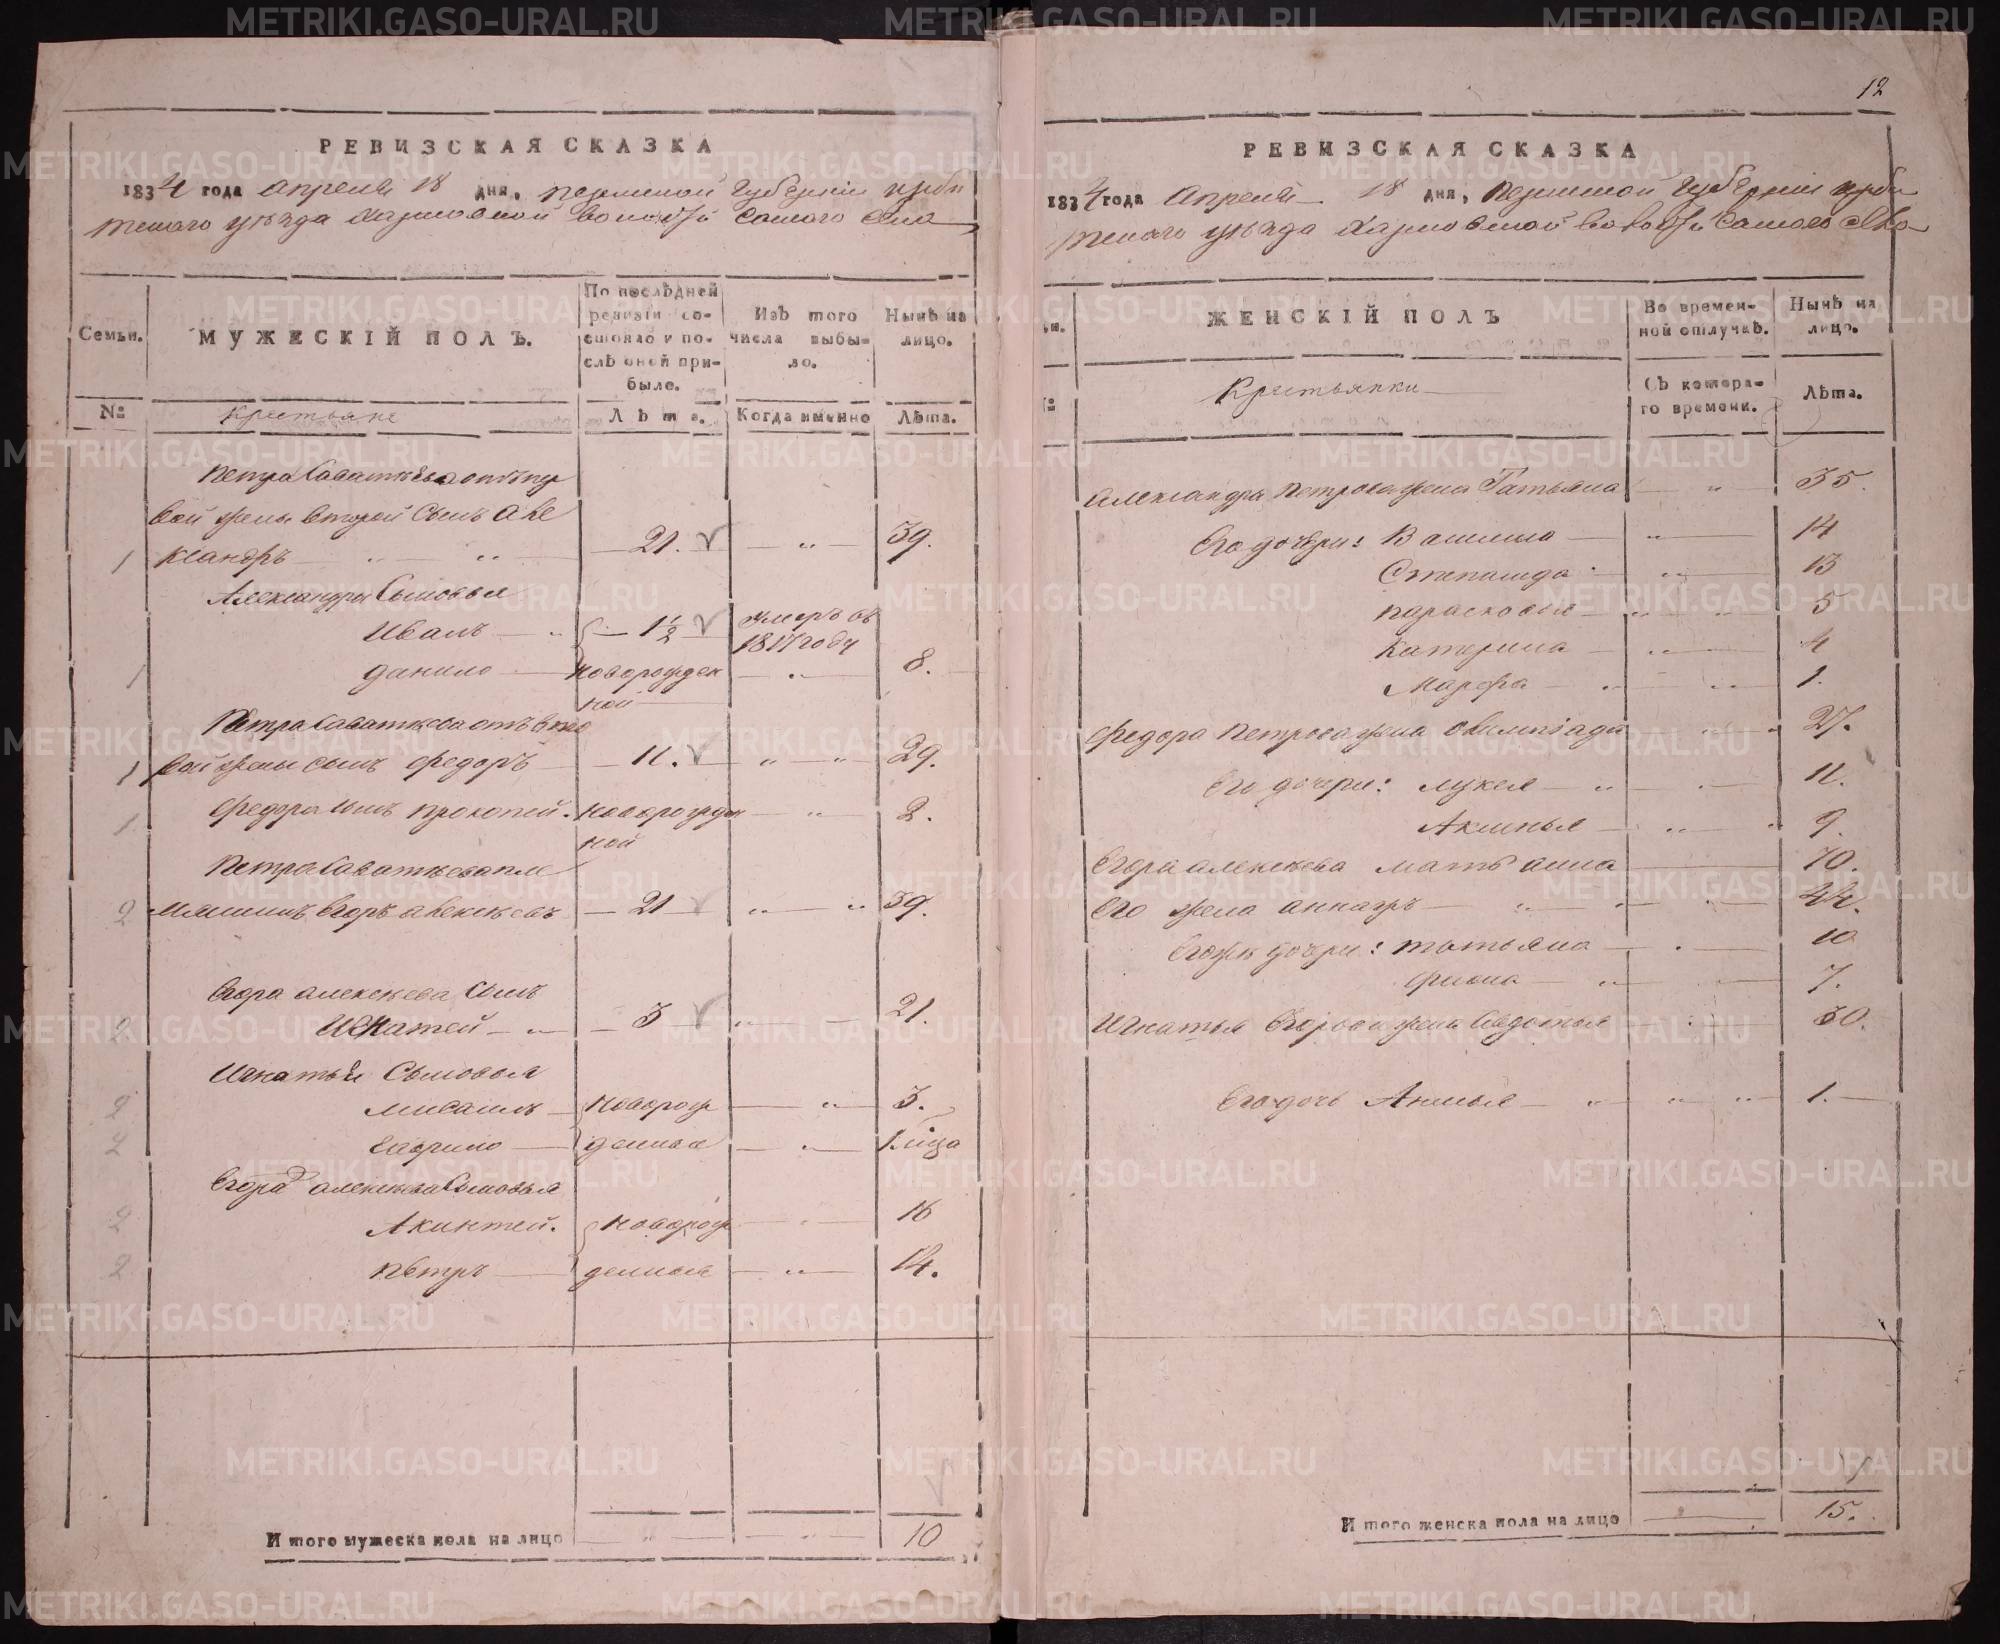 12
РЕВИЗСКАЯ СКАЗКА
1834 года Апреля 18 дня, Пермской Губернии Ирби
тскаго уезда Харловской волости самого села
Семьи. МУЖЕСКІЙ ПОЛЪ. По послѣдней ревизіи состояло и послѣ оной прибыло. Изъ того числа выбыло. Нынѣ на лицо.
№ Крестьяне Лѣта. Когда именно Лѣта.
Петра Саватеева отъ пер
вой жены второй сынъ Але
1 ксандръ 21. 39.
Александра Сыновья
Иванъ 1 1/2 умеръ въ 1817 году
1 Данило новорожден ной 8.
Петра Саватеева отъ вто
1 рой жены сынъ Федоръ 11. 29.
1 Федора сынъ Прокопей. новорожден ной 2.
Петра Саватеева пле
2 мянникъ Егоръ Алексеевъ 21 39.
Егора Алексеева сынъ
2 Игнатей 3 21.
Игнатья Сыновья
2 Михаилъ новорож 3.
2 Гаврило денныя
Егора Алексеева Сыновья
2 Акинтей. новорож 16
2 Петръ денныя 14.
Итого мужеска пола на лицо 10
РЕВИЗСКАЯ СКАЗКА
1834 года Апреля 18 дня, Пермской Губернии Ирби
тскаго уезда Харловской волости самого села
ЖЕНСКІЙ ПОЛЪ Во временной отлучкѣ. Нынѣ на лицо.
№ Крестьянки Съ котораго времени. Лѣта.
Александра Петрова жена Татьяна 35.
Его дочери: Васиса 14
Степанида 13
Парасковья 5
Катерина 4
Марфа 1.
Федора Петрова жена Олимпіада 27.
Его дочери: Лукея 11.
Аксинья 9.
Егора Алексеева мать Анна 70.
Его жена 44.
Егожъ дочери: Татьяна 10
7.
Игнатья Егорова жена Авдотья 30.
Его дочь Анисья 1.
Итого женска пола на лицо 15.